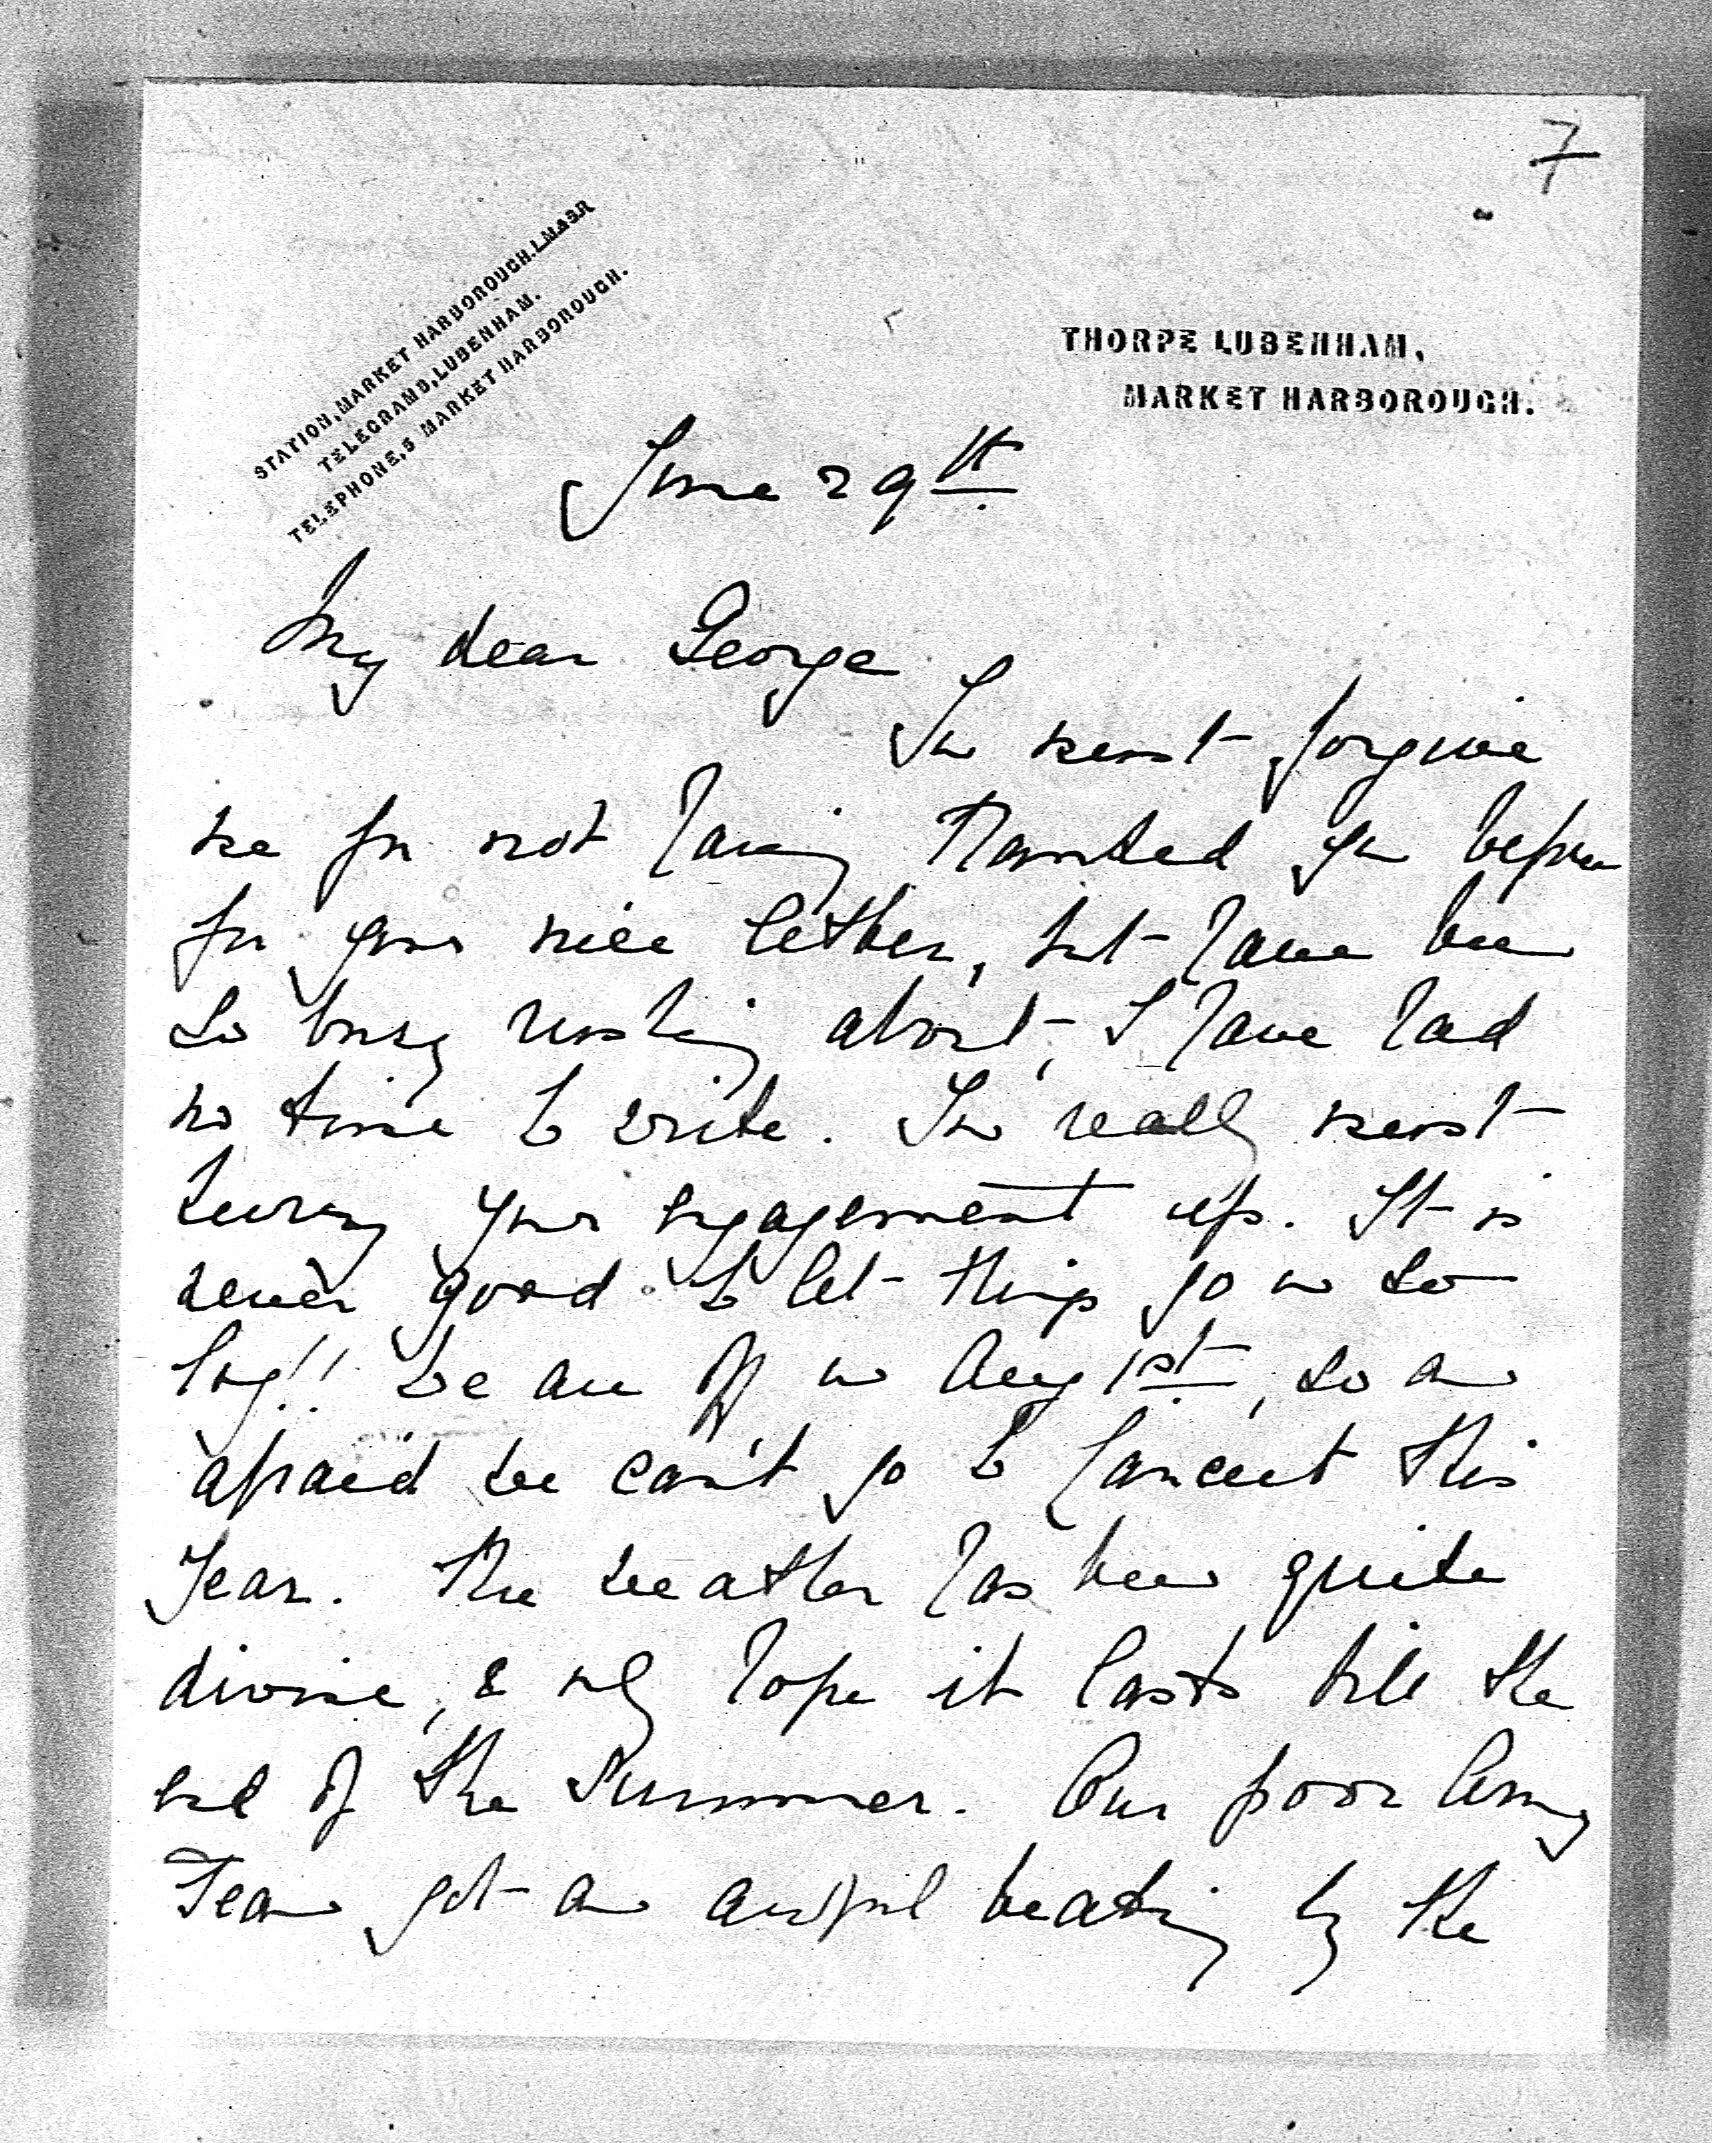 7
STATION, MARKET HARBOROUGH. L.M.&S.R
TELEGRAMS, LUBENHAM.
TELEPHONE, 5 MARKET HARBOROUGH.
THORPE LUBENHAM,
MARKET HARBOROUGH.
June 29th
My dear George
You must forgive
me for not having thanked you before
for your nice letter, but have been
so busy rushing about, I have had
no time to write. You really must
hurry your engagement up. It is
never good to let things go on so
long!! We are off on Aug 1st, so am
afraid we can't go to this
Year. The weather has been quite
divine, & only hope it lasts till the
end of the Summer. Our poor Army
Team got an awful beating by the